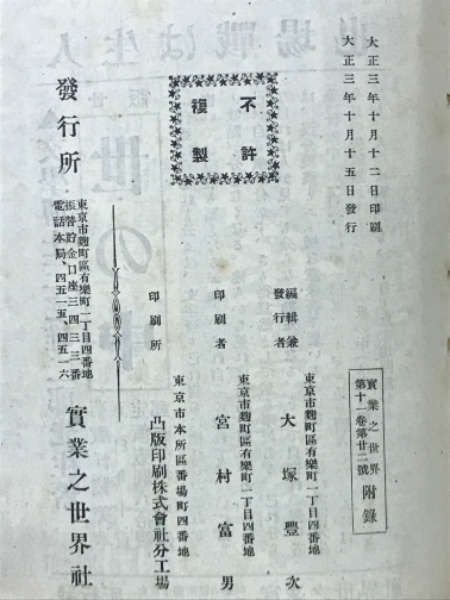 大正三年十月十二日印刷
大正三年十月十五日發行
實業之世界
第十一卷第廿二號
附錄
不許
複製
編輯兼
發行者
東京市麴町區有樂町一丁目四番地
大塚豐次
印刷者
東京市麴町區有樂町一丁目四番地
宮村富男
印刷所
東京市本所區番場町四番地
凸版印刷株式會社分工場
發行所
東京市麴町區有樂町一丁目四番地
振替貯金口座三四三三番
電話本局、四五一五、四五一六
實業之世界社